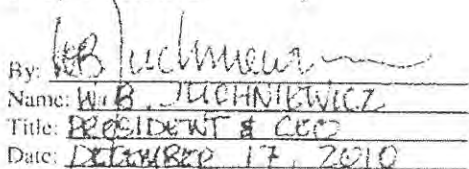 By: WB Juchniewicz
Name: W. B. JUCHNIEWICZ
Title: PRESIDENT & CEO
Date: DECEMBER 17, 2010